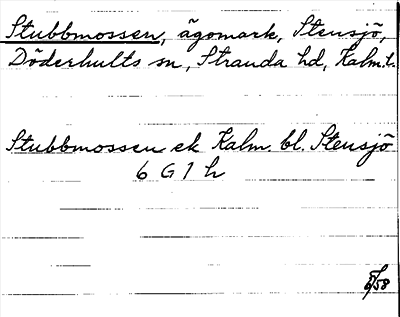 Stubbmossen, ägomark, Stensjö,
Döderhults sn, Stranda hd, Kalm. l.
Stubbmossen ek Kalm. bl. Stensjö
6 G 1 h
58